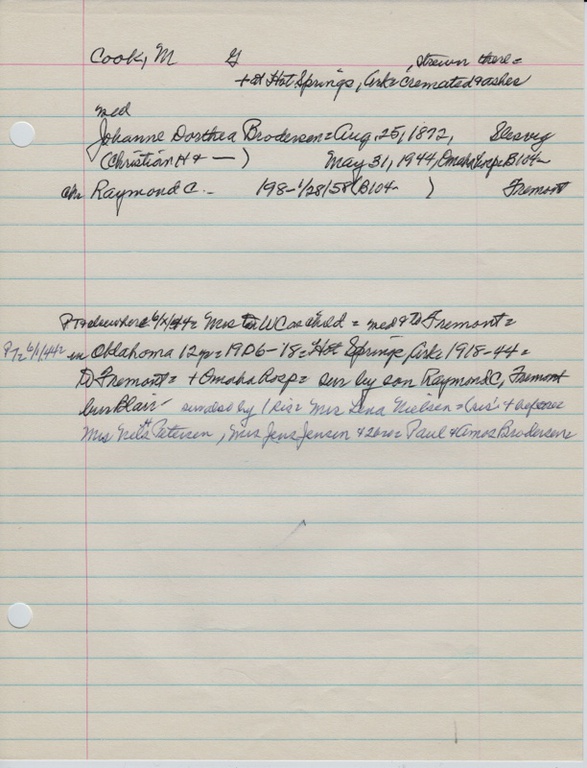 Cook, M G , strewn there=
+ at Hot Springs, Ark= cremated & ashes
med
Johanne Dorthea Brodersen= Aug. 25, 1872, Slesvig
(Christian H + — ) May 31, 1944, Omaha hosp= B104-
ch= Raymond C. - 198-1/28/58 (B104- ) Fremont
elsewhere 6/1/44= Mrs to WC as child = med & to Fremont=
PT= 6/1/44= in Oklahoma 12 yr= 1906-18= Hot Springs, Ark= 1918-44=
to Fremont= + Omaha hosp= sur by son Raymond C, Fremont
bur Blair- sur also by 1 sis= Mrs Lena Nielsen= (sis' + bef
Mrs Nels H Petersen, Mrs Jens Jensen + 2 bro= Paul & Amos Brodersen=